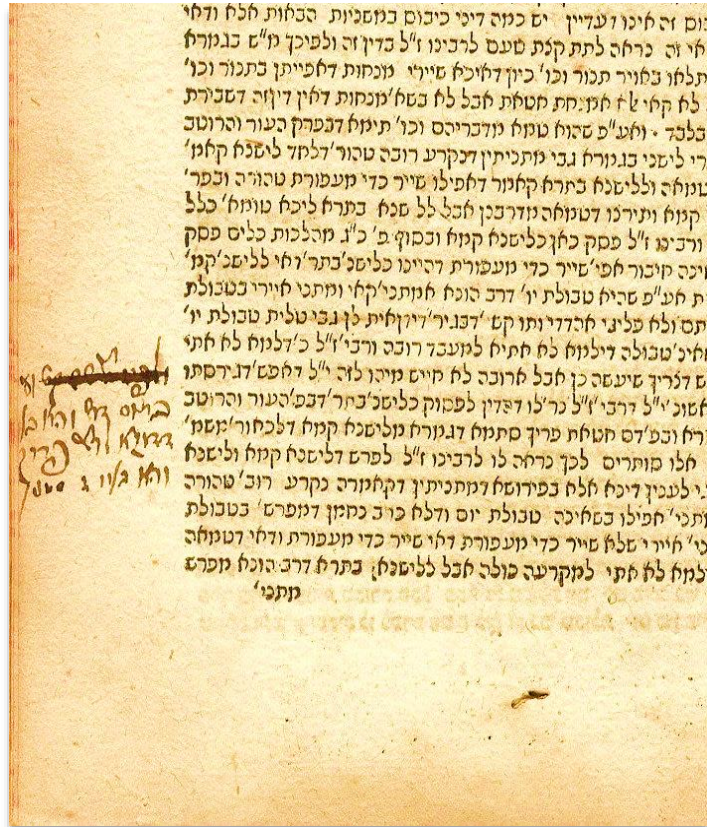 בום זה אינו דעדיין יש כמה דיני כיבוס במשניות הבאות אלא ודאי
אי זה נראה לתת קצת טעם לרבינו ז"ל בדין זה ולפיכך מ"ש בגמרא
תלאו באויר תנור וכו' כיון דאיכא שיירי מנחות דאפייתן בתנור וכו'
לא קאי אלא אמנחת חטאת אבל לא בשא' מנחות דאין דין זה דשבירת
בלבד ואע"פ שהוא טמא מדבריהם וכו' תימא דבפרק העור והרוטב
רי לישני בגמרא גבי מתניתין דנקרע רובה טהור' דלחד לישנא קאמ'
טמאה וללישנא בתרא קאמר דאפילו שייר כדי מעפורת טהורה ובפר'
קמא ותירצו דטמאה מדרבנן אבל לל שנא בתרא ליכא טומא' כלל
ורבינו ז"ל פסק כאן כלישנא קמא ובסוף פ' כ"ג מהלכות כלים פסק
אינה חיבור אפי' שייר כדי מעפורת דהיינו כלישנ' בתר' דאי ללישנ' קמ'
ת אע"פ שהיא טבולת יו' דרב הונא אמתני' קאי ומתני איירי בטבולת
תם ולא פליגי אהדדי ותו קש' דבגיר' דידן אית לן גבי טלית טבולת יו'
אינ' טבולה דילמא לא אתיא למעבד רובה ורבי' ז"ל כ' דלמא לא אתי
ש דצריך שיעשה כן אבל ארובה לא חייש מיהו לזה י"ל דאפש' דגירסתו
אשונ' י"ל דרבי' ז"ל נר' לו דאין לפסוק כלישנ' בתר' דבפ' העור והרוטב
רא ובפ' דם חטאת פריך סתמא דגמרא מלישנא קמא דלכאור' משמ'
אלו סותרים לכך נראה לו לרבינו ז"ל לפרש דלישנא קמא ולישנא
י לענין דינא אלא בפירושא דמתניתין דקאמרה נקרע רוב' טהורה
מתני' אפילו בשאינה טבולת יום ודלא כרב נחמן דמפרש' בטבולת
כי' איירי שלא שייר כדי מעפורת דאי שייר כדי מעפורת ודאי דטמאה
ילמא לא אתי למקרעה כולה אבל ללישנא בתרא דרב הונא מפרש
מתני'